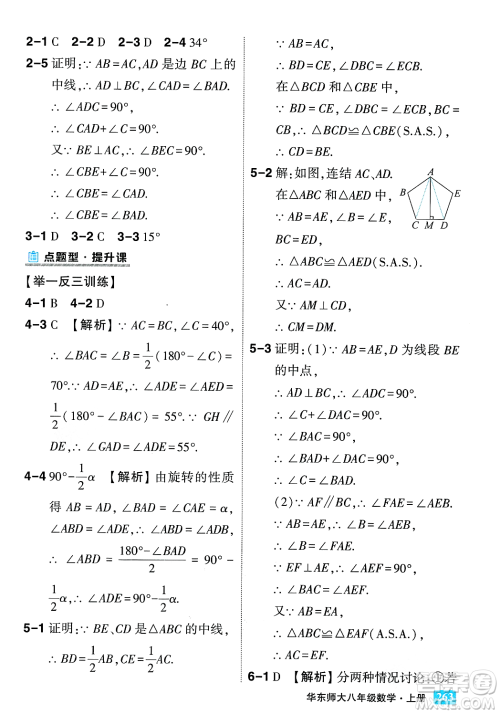 2-1 C 2-2 D 2-3 D 2-4 34°
2-5 证明:∵ AB=AC,AD 是边 BC 上的
中线,∴ AD⊥BC,∠CAD=∠BAD.
∴ ∠ADC=90°,
∴ ∠CAD+∠C=90°.
又∵ BE⊥AC,∴ ∠BEC=90°.
∴ ∠CBE+∠C=90°.
∴ ∠CBE=∠CAD.
∴ ∠CBE=∠BAD.
3-1 D 3-2 C 3-3 15°
点题型·提升课
【举一反三训练】
4-1 B 4-2 D
4-3 C 【解析】∵ AC=BC,∠C=40°,
∴ ∠BAC=∠B=1/2(180°-∠C)=
70°.∵ AD=AE,∴ ∠ADE=∠AED=
1/2(180°-∠BAC)=55°.∵ GH∥
DE,∴ ∠GAD=∠ADE=55°.
4-4 90°-1/2α 【解析】由旋转的性质
得 AB=AD,∠BAD=∠CAE=α,
∴ ∠ABD=(180°-∠BAD)/2=90°-
1/2α.
5-1 证明:∵ BE、CD 是 △ABC 的中线,
∵ AB=AC,
∴ BD=CE,∠DBC=∠EBC.
在 △BCD 和 △CBE 中,
∴ △BCD≌△CBE(S.A.S.).
∴ CD=BE.
5-2 解:如图,连结 AC、AD.
在 △ABC 和 △AED 中,
A
B
E
C M D
∴ △ABC≌△AED(S.A.S.).
∴ AC=AD.
∴ △ACD 是等腰三角形.
又∵ AM⊥CD,
∴ CM=MD.
5-3 证明:(1)∵ AB=AE,D 为线段 BE
的中点,
∴ AD⊥BC.
∴ ∠C+∠DAC=90°.
∴ ∠BAC=90°.
(2)∵ AF∥BC,
∴ ∠FAE=∠AEB.
∵ AB=AE,∴ ∠B=∠AEB.
∴ ∠B=∠FAE.
∵ EF⊥AE,∴ ∠AEF=90°.
∴ ∠BAC=∠AEF.
∴ △ABC≌△EAF.
∴ AC=EF.
6-1 D 【解析】分两种情况讨论:①若
华东师大八年级数学·上册 263